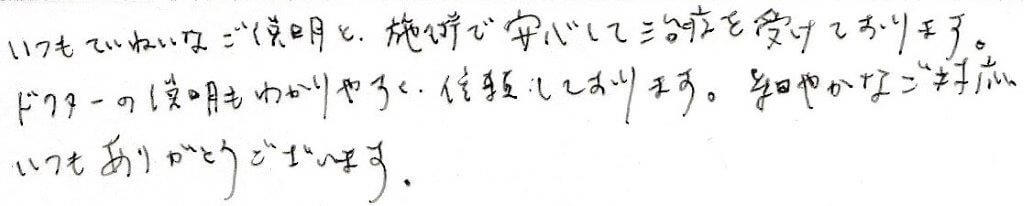 いつもていねいなご説明と、施術で安心して治療を受けております。
ドクターの説明もわかりやすく、信頼しております。細やかなご対応
いつもありがとうございます。